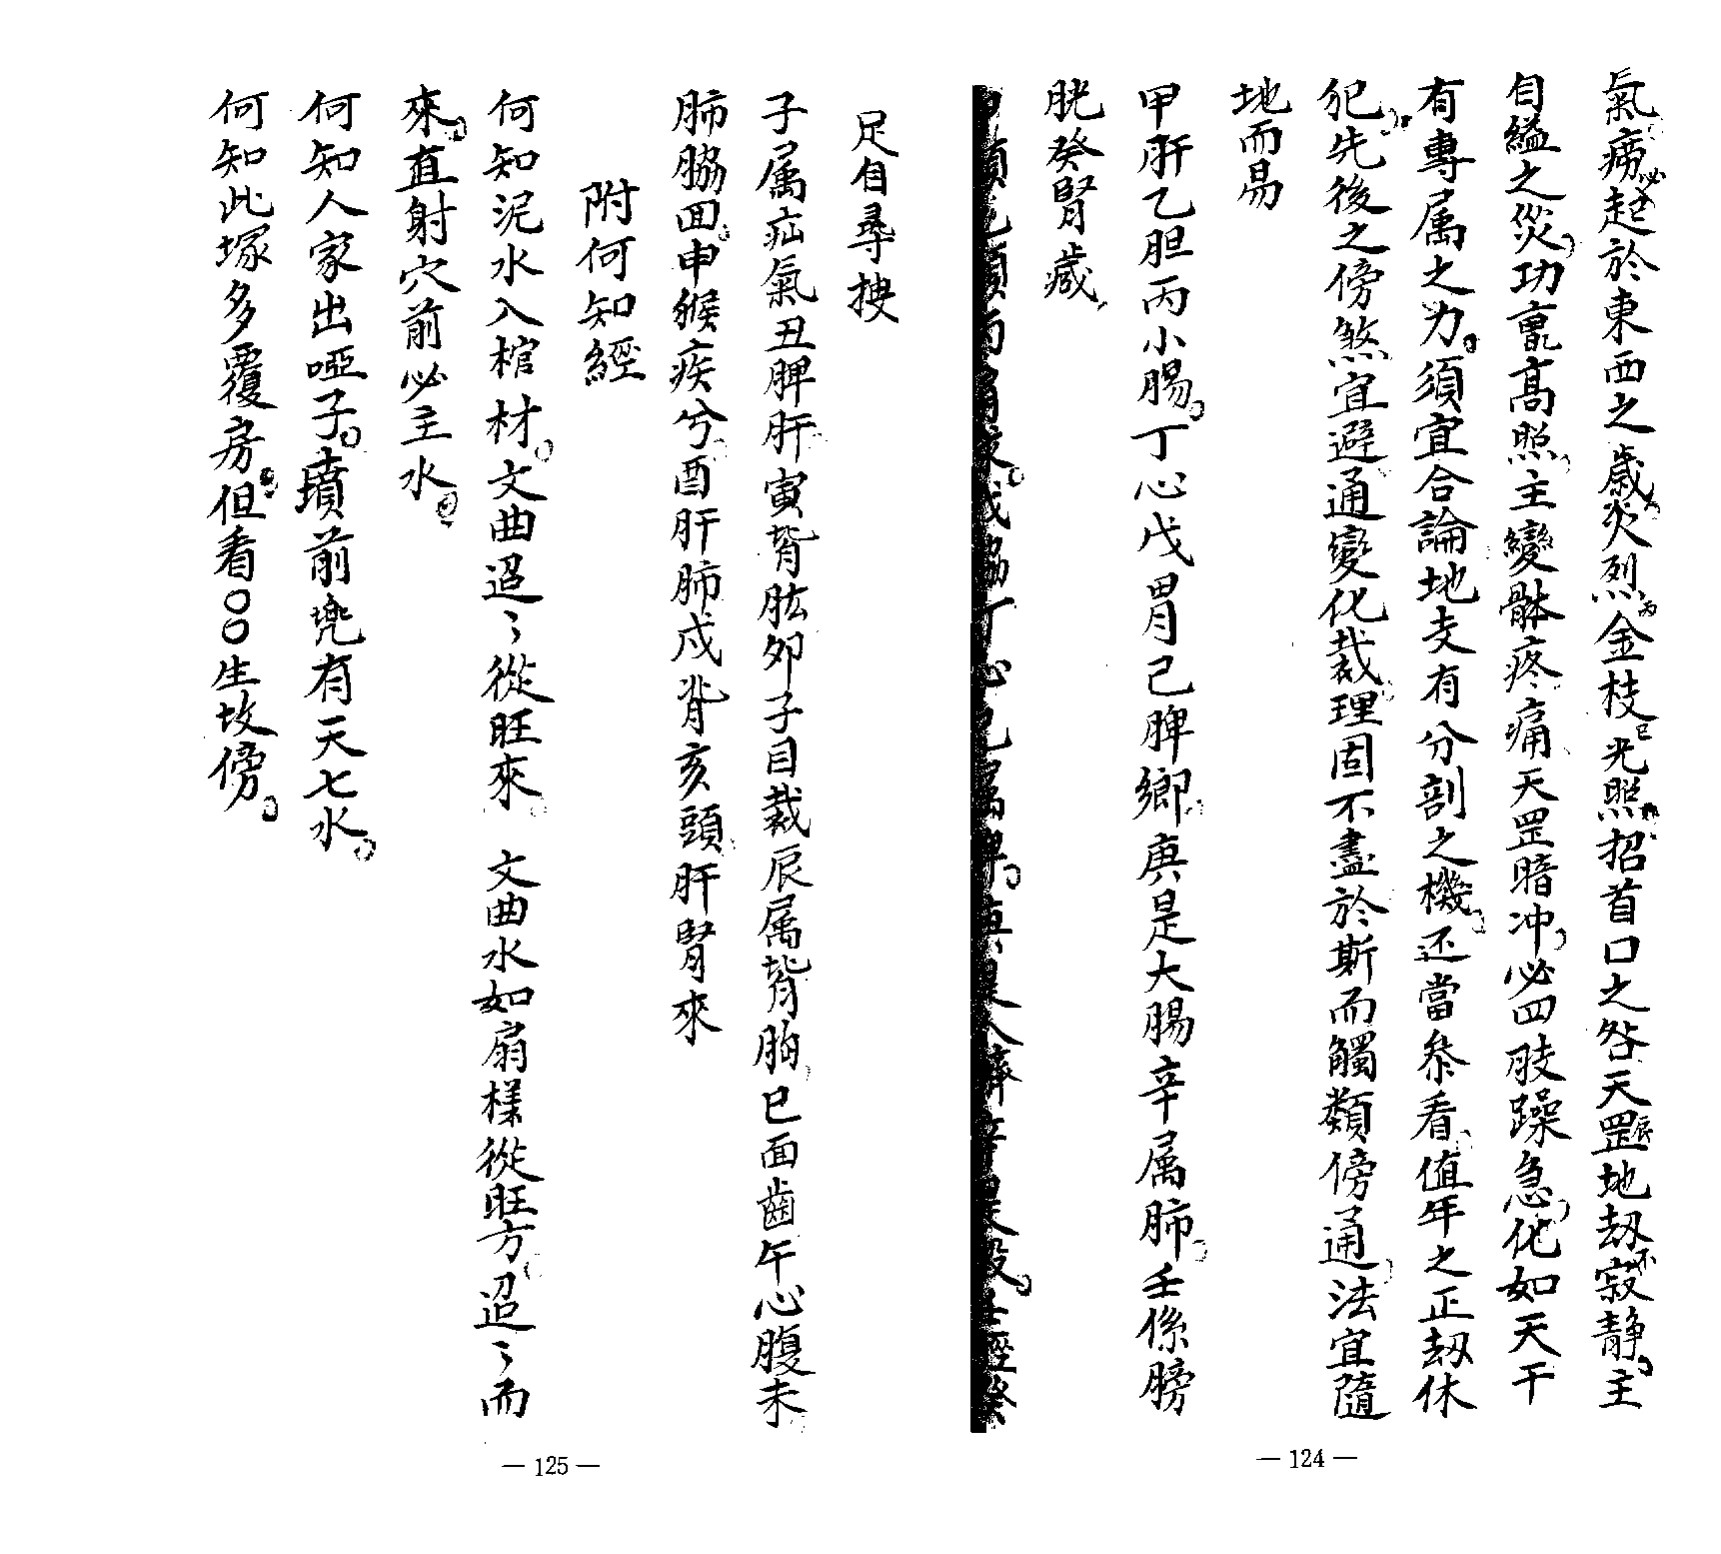 氣癆必起於東西之歲炎烈丙金枝巳光照招首口之咎天罡辰地刼不寂靜主
自縊之災功竜高照主變骵疼痛天罡暗冲必四肢躁急化如天干
有專属之力須宜合論地支有分剖之機还當叅看值年之正刼休
犯先後之傍煞宜避通變化裁理固不盡於斯而觸類傍通法宜隨
地而易
甲肝乙胆丙小腸丁心戊胃己脾鄉庚是大腸辛属肺壬係膀
胱癸腎藏
甲頭乙項丙肩求戊脇丁心己属脾庚是人臍辛是股壬脛癸
足自尋搜
子属疝氣丑脾肝寅背肱夘子目裁辰属背胸巳面齒午心腹未
肺脇囬申猴疾兮酉肝肺戌背亥頭肝腎來
附何知經
何知泥水入棺材文曲迢々從旺來 文曲水如扇樣從旺方迢々而
來直射穴前必主水
何知人家出啞子墳前兜有天七水
何知此塚多覆房但看〇〇生坟傍
— 124 —
— 125 —